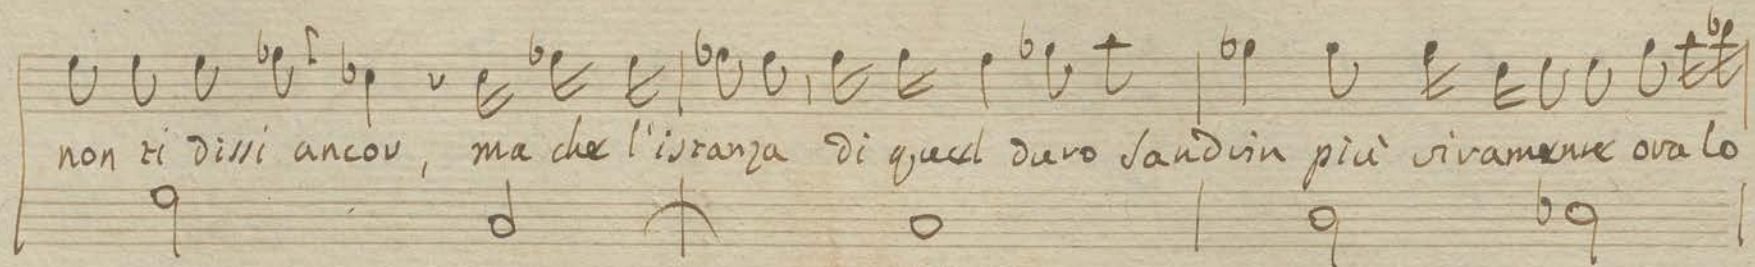 non ti dissi ancor, ma che l'istanza di quel duro Sandrin più vivamente ora lo